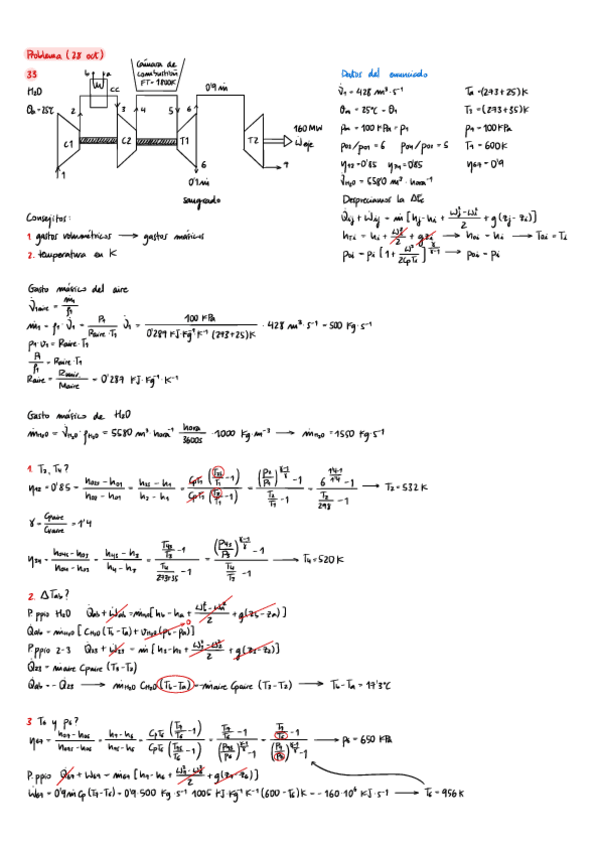 Problema (28 oct)
33
H2O
θa = 25°C
b a
W
CC
Cámara de
combustión
FT = 1800K
0'9 ṁ
2
3
4
5
6
C1
C2
T1
T2
160 MW
Ẇeje
1
6
7
0'1 ṁ
sangrado
Datos del enunciado
V̇1 = 428 m³·s⁻¹ Ta = (273+25) K
θa = 25°C = θ1 T3 = (273+35) K
pa = 100 kPa = p1 p7 = 100 kPa
p02/p01 = 6 p04/p03 = 5 T7 = 600K
η12 = 0'85 η34 = 0'85 η67 = 0'9
V̇H2O = 5580 m³·hora⁻¹
Despreciamos la ΔEc
Q̇ij + Ẇij = ṁ [hj - hi + (ωj² - ωi²)/2 + g(zj - zi)]
hTi = hi + ωi²/2 + gzi → h0i = hi → T0i = Ti
p0i = pi [1 + ω²/2CpTi]^(γ/γ-1) → p0i = pi
Consejitos:
1 gastos volumétricos → gastos másicos
2. temperatura en K
Gasto másico del aire
V̇1aire = ṁ1/ρ1
ṁ1 = ρ1·V̇1 = P1/(Raire·T1) V̇1 = 100 kPa/(0'287 kJ·kg⁻¹K⁻¹ (273+25)K) · 428 m³·s⁻¹ = 500 kg·s⁻¹
p1·v1 = Raire·T1
P1/ρ1 = Raire·T1
Raire = Runiv./Maire = 0'287 kJ·kg⁻¹·K⁻¹
Gasto másico de H2O
ṁH2O = V̇H2O·ρH2O = 5580 m³·hora⁻¹ · hora/3600s · 1000 kg·m⁻³ → ṁH2O = 1550 kg·s⁻¹
1. T2, T4?
η12 = 0'85 = (h02s - h01)/(h02 - h01) = (h2s - h1)/(h2 - h1) = CpT1(T2s/T1 - 1)/CpT1(T2/T1 - 1) = ((P2/P1)^(γ-1/γ) - 1)/(T2/T1 - 1) = (6^(1'4-1/1'4) - 1)/(T2/298 - 1) → T2 = 532 K
γ = Cpaire/Cvaire = 1'4
η34 = (h04s - h03)/(h04 - h03) = (h4s - h3)/(h4 - h3) = (T4s/T3 - 1)/(T4/273+35 - 1) = ((P4s/P3)^(γ-1/γ) - 1)/(T4/T3 - 1) → T4 = 520 K
2. ΔTab?
P. ppio H2O Q̇ab + Ẇab = ṁH2O [hb - ha + (ωb² - ωa²)/2 + g(zb - za)]
Q̇ab = ṁH2O [CH2O (Tb - Ta) + vH2O (pb - pa)] 0
P. ppio 2-3 Q̇23 + Ẇ23 = ṁ [h3 - h2 + (ω3² - ω2²)/2 + g(z3 - z2)]
Q̇23 = ṁaire Cpaire (T3 - T2)
Q̇ab = - Q̇23 → ṁH2O CH2O (Tb - Ta) = - ṁaire Cpaire (T3 - T2) → Tb - Ta = 17'3°C
3 T6 y p6?
η67 = (h07 - h06)/(h07s - h06) = (h7 - h6)/(h7s - h6) = CpT6(T7/T6 - 1)/CpT6(T7s/T6 - 1) = (T7/T6 - 1)/((P7s/P6)^(γ-1/γ) - 1) = (T7/T6 - 1)/((P7/P6)^(γ-1/γ) - 1) → p6 = 650 kPa
P. ppio Q̇67 + Ẇ67 = ṁ67 [h7 - h6 + (ω7² - ω6²)/2 + g(z7 - z6)]
Ẇ67 = 0'9 ṁ Cp (T7 - T6) = 0'9·500 kg·s⁻¹ 1005 kJ·kg⁻¹K⁻¹ (600 - T6) K = - 160·10⁶ kJ·s⁻¹ → T6 = 956 K